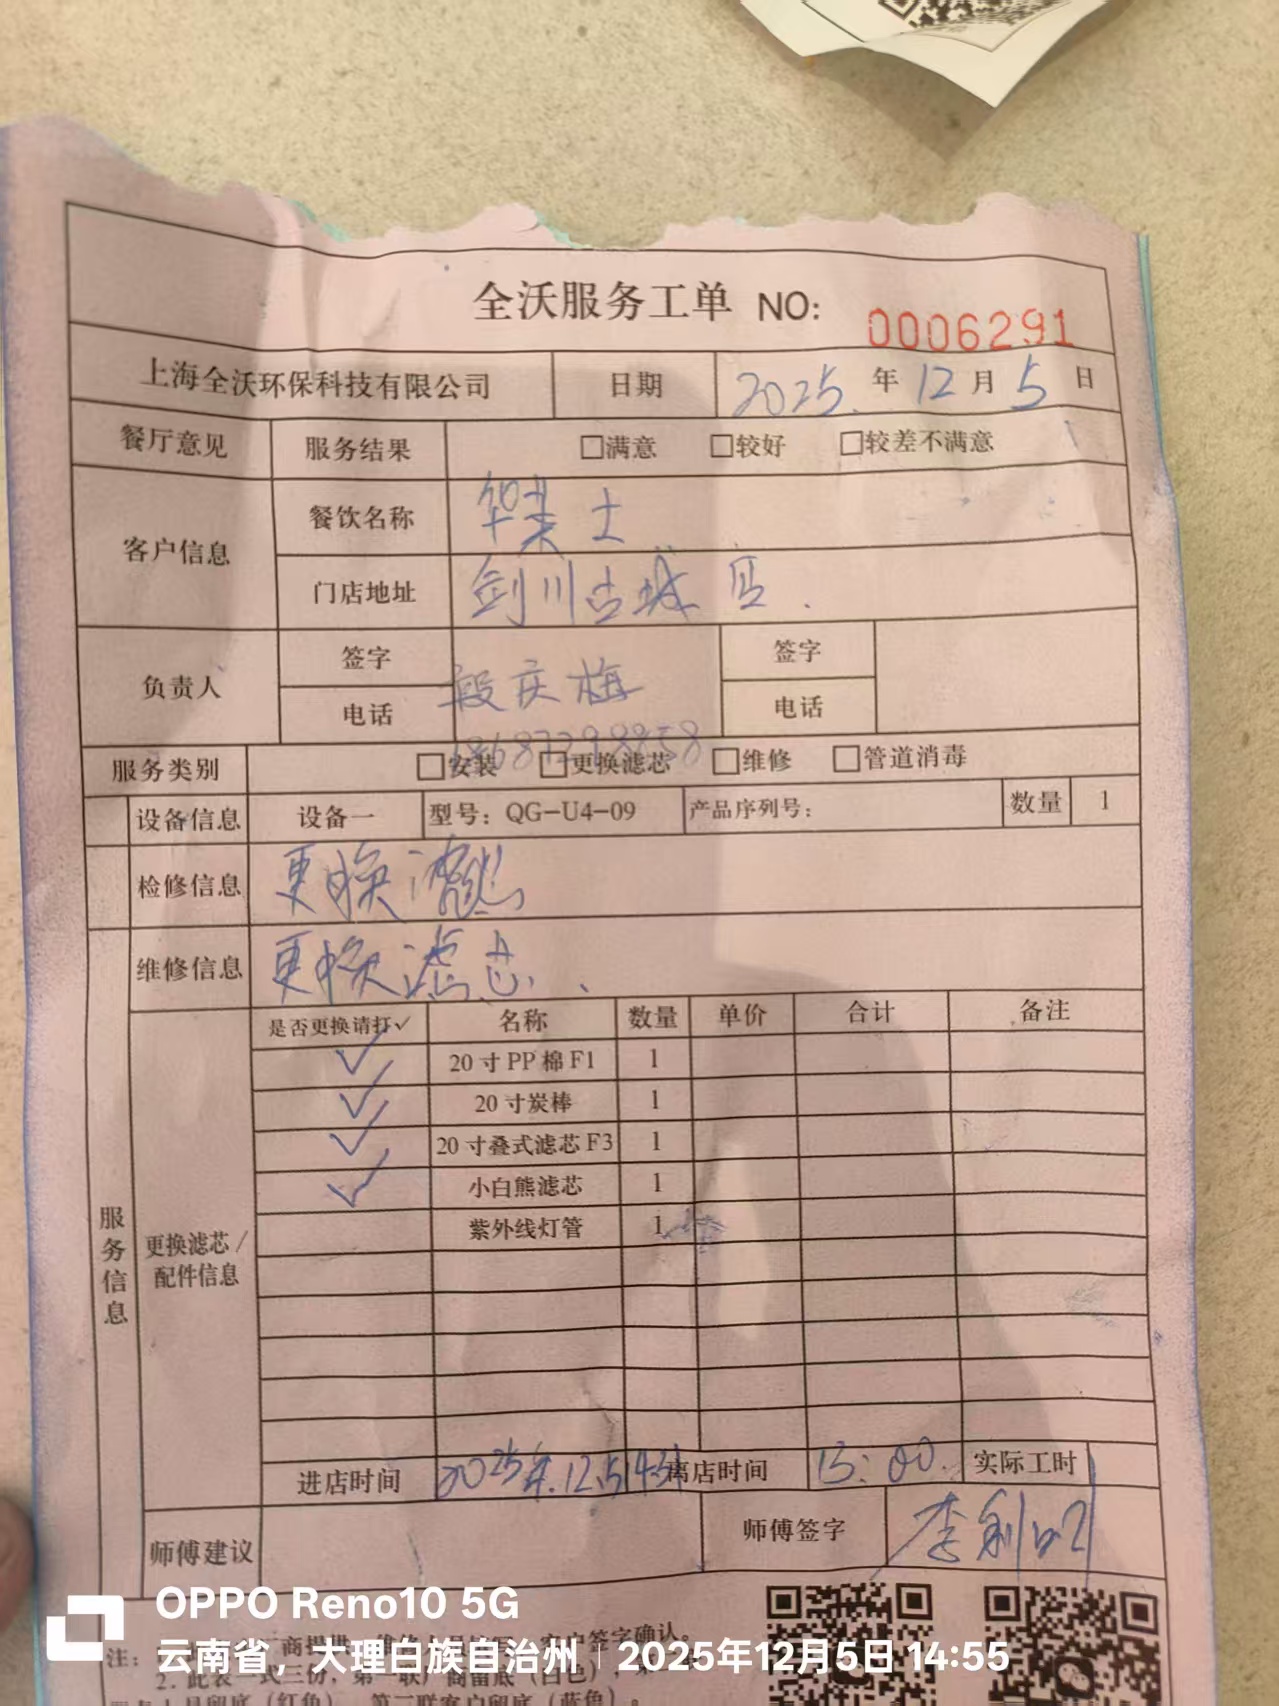 全沃服务工单 NO: 0006291
上海全沃环保科技有限公司 日期 2025. 年 12 月 5 日
餐厅意见 服务结果 □满意 □较好 □较差不满意
客户信息 餐饮名称 华莱士
门店地址 剑川古城店.
负责人 签字 段庆梅 签字
电话 电话
服务类别 □安装 □更换滤芯 □维修 □管道消毒
设备信息 设备一 型号：QG-U4-09 产品序列号： 数量 1
检修信息 更换滤芯
维修信息 更换滤芯.
服务信息
更换滤芯/配件信息
是否更换请打✓ 名称 数量 单价 合计 备注
✓ 20寸PP棉F1 1
✓ 20寸炭棒 1
✓ 20寸叠式滤芯F3 1
✓ 小白熊滤芯 1
紫外线灯管 1
进店时间 2025年.12.5 离店时间 15:00. 实际工时
师傅建议 师傅签字 李利明
OPPO Reno10 5G
云南省，大理白族自治州 | 2025年12月5日 14:55
注：